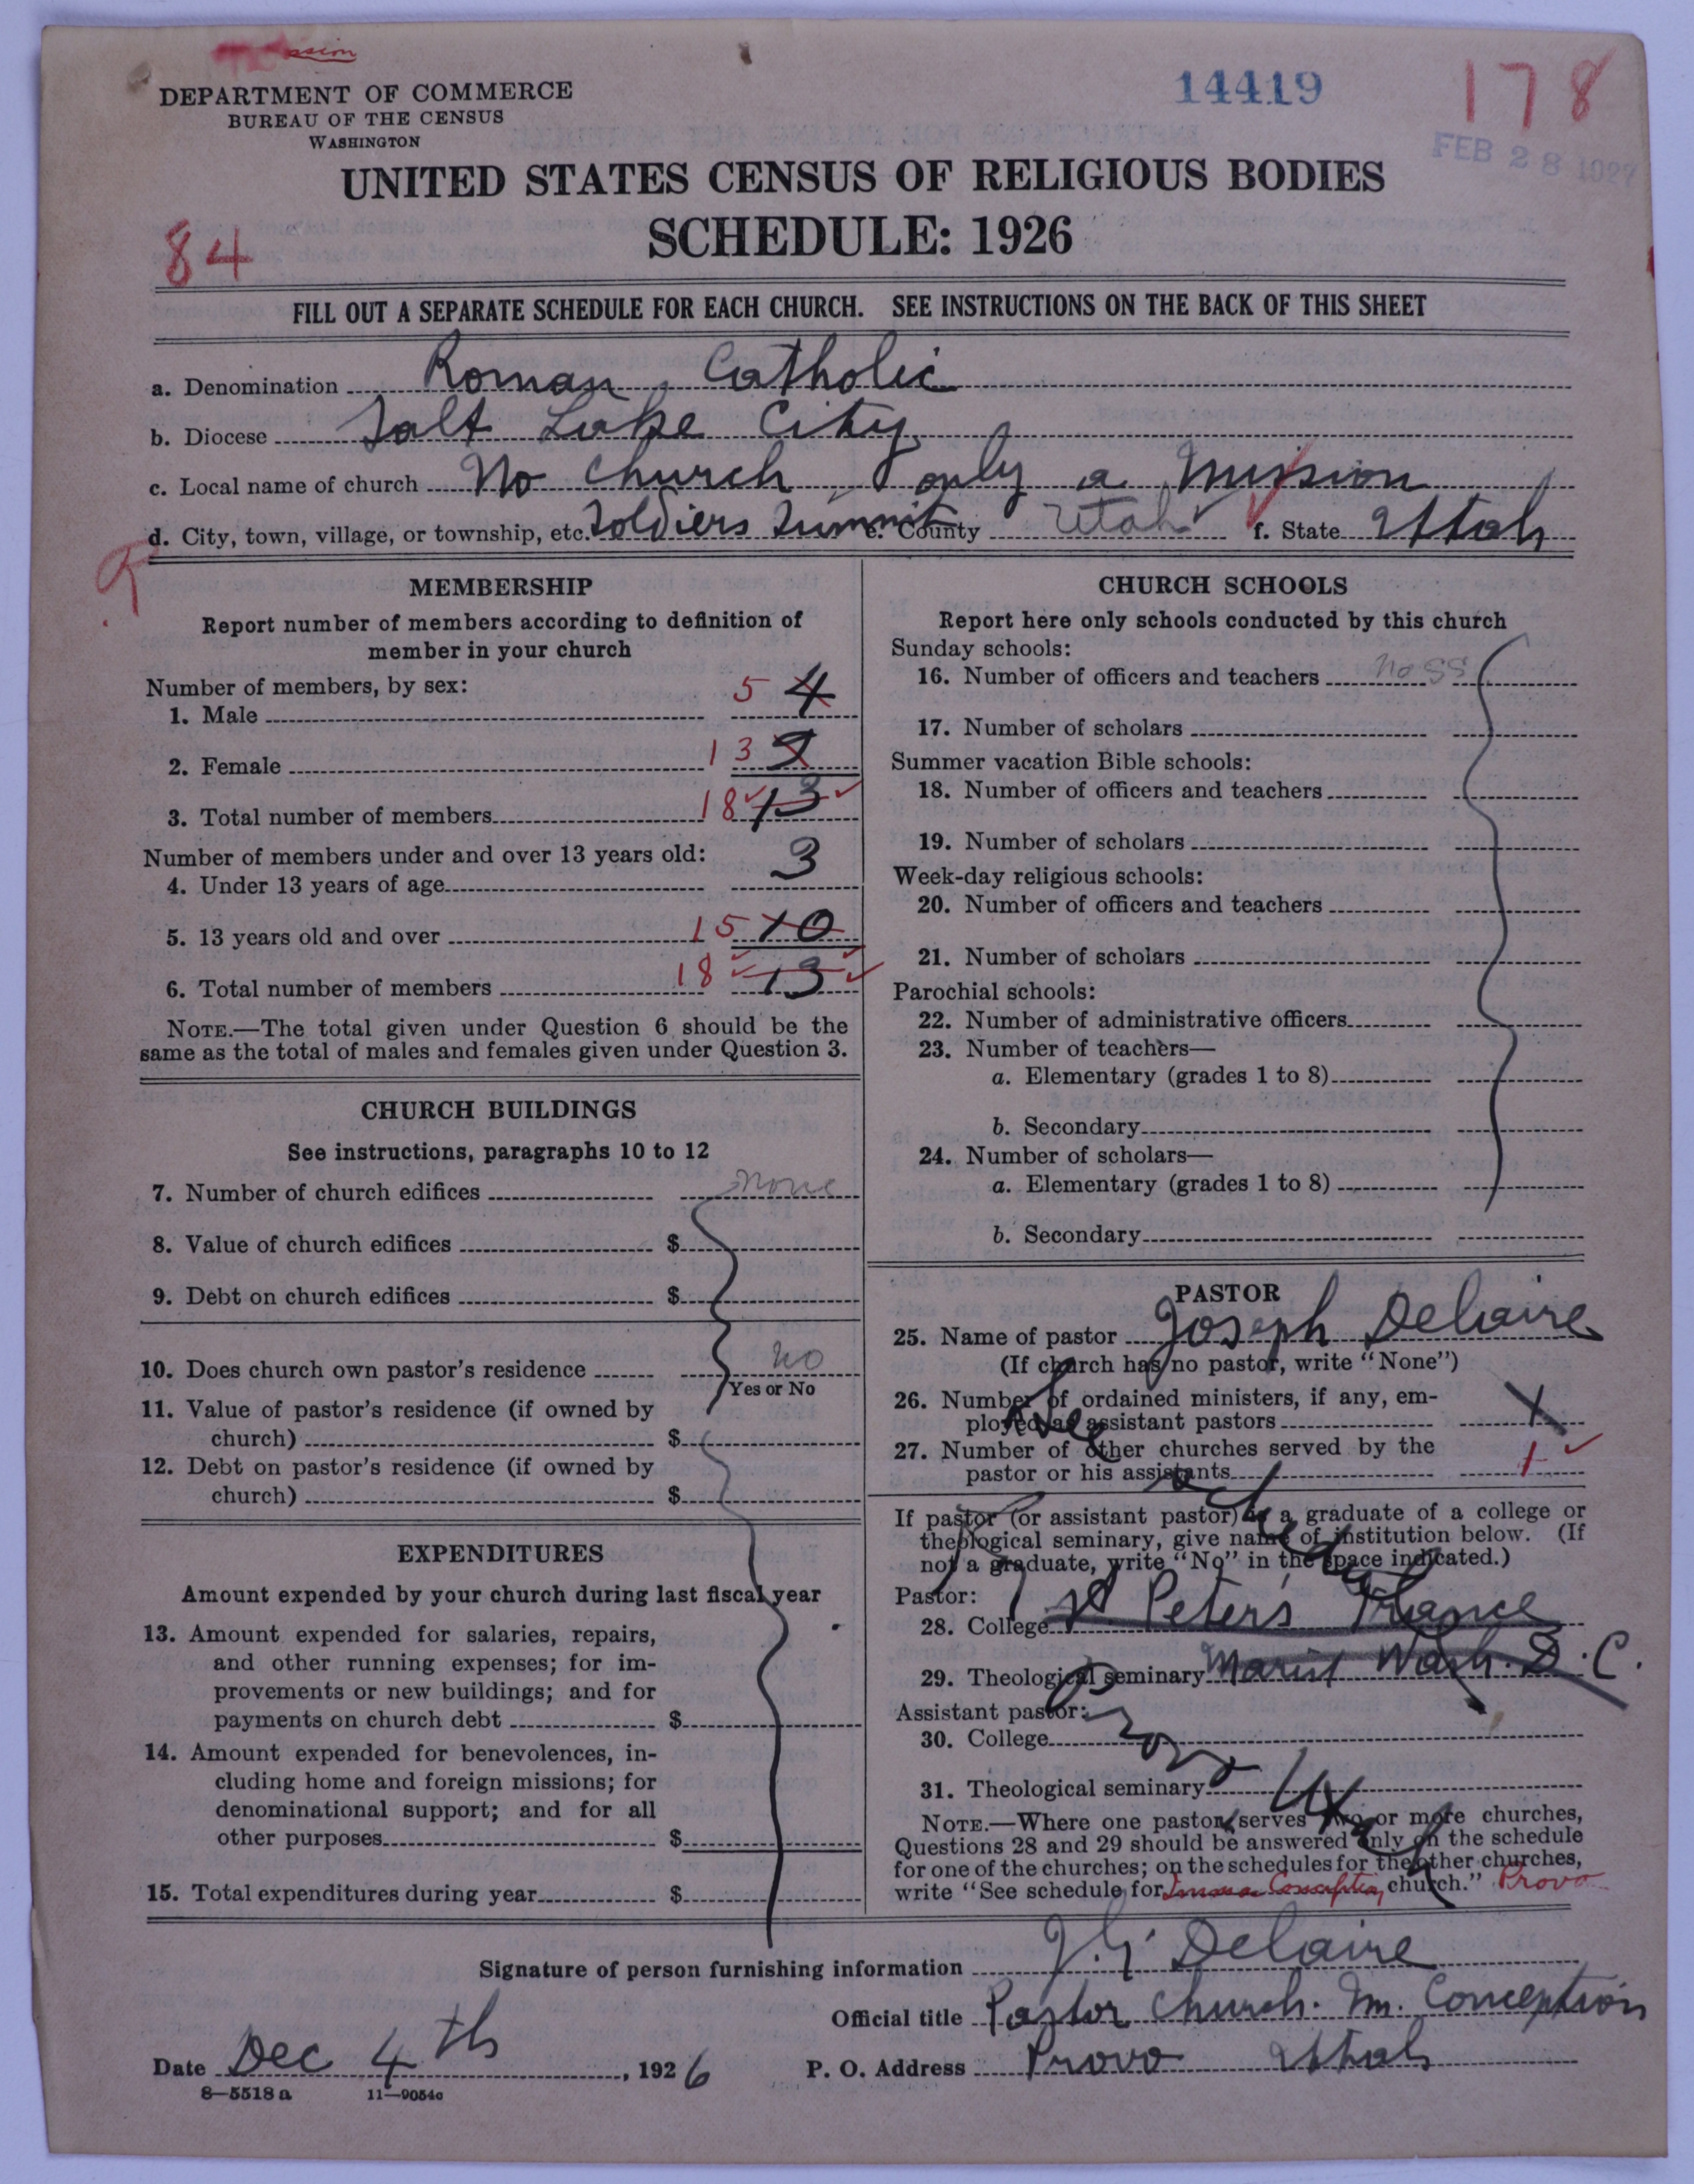 ssion
DEPARTMENT OF COMMERCE
BUREAU OF THE CENSUS
WASHINGTON
14419
178
FEB 28 1927
UNITED STATES CENSUS OF RELIGIOUS BODIES
SCHEDULE: 1926
84
FILL OUT A SEPARATE SCHEDULE FOR EACH CHURCH. SEE INSTRUCTIONS ON THE BACK OF THIS SHEET
a. Denomination Roman Catholic
b. Diocese Salt Lake City
c. Local name of church No church only a mission
d. City, town, village, or township, etc. Soldiers Summit e. County Utah f. State Utah
MEMBERSHIP
Report number of members according to definition of
member in your church
Number of members, by sex:
1. Male 5 4
2. Female 13 9
3. Total number of members 18 13
Number of members under and over 13 years old:
4. Under 13 years of age 3
5. 13 years old and over 15 10
6. Total number of members 18 13
NOTE.—The total given under Question 6 should be the
same as the total of males and females given under Question 3.
CHURCH BUILDINGS
See instructions, paragraphs 10 to 12
7. Number of church edifices none
8. Value of church edifices $
9. Debt on church edifices $
10. Does church own pastor's residence no
Yes or No
11. Value of pastor's residence (if owned by
church) $
12. Debt on pastor's residence (if owned by
church) $
EXPENDITURES
Amount expended by your church during last fiscal year
13. Amount expended for salaries, repairs,
and other running expenses; for im-
provements or new buildings; and for
payments on church debt $
14. Amount expended for benevolences, in-
cluding home and foreign missions; for
denominational support; and for all
other purposes $
15. Total expenditures during year $
CHURCH SCHOOLS
Report here only schools conducted by this church
Sunday schools:
16. Number of officers and teachers no SS
17. Number of scholars
Summer vacation Bible schools:
18. Number of officers and teachers
19. Number of scholars
Week-day religious schools:
20. Number of officers and teachers
21. Number of scholars
Parochial schools:
22. Number of administrative officers
23. Number of teachers—
a. Elementary (grades 1 to 8)
b. Secondary
24. Number of scholars—
a. Elementary (grades 1 to 8)
b. Secondary
PASTOR
25. Name of pastor Joseph Delaire
(If church has no pastor, write "None")
26. Number of ordained ministers, if any, em-
ployed as assistant pastors
27. Number of other churches served by the
pastor or his assistants 1
If pastor (or assistant pastor) is a graduate of a college or
theological seminary, give name of institution below. (If
not a graduate, write "No" in the space indicated.)
See schedule for Provo Utah
Pastor:
28. College St Peters France
29. Theological seminary Marist Wash. D.C.
Assistant pastor:
30. College
31. Theological seminary
NOTE.—Where one pastor serves two or more churches,
Questions 28 and 29 should be answered only on the schedule
for one of the churches; on the schedules for the other churches,
write "See schedule for Immac Conception church." Provo
Signature of person furnishing information J. G. Delaire
Official title Pastor Church. Im. Conception
Date Dec 4th, 1926 P. O. Address Provo Utah
8—5518 a 11—9054a